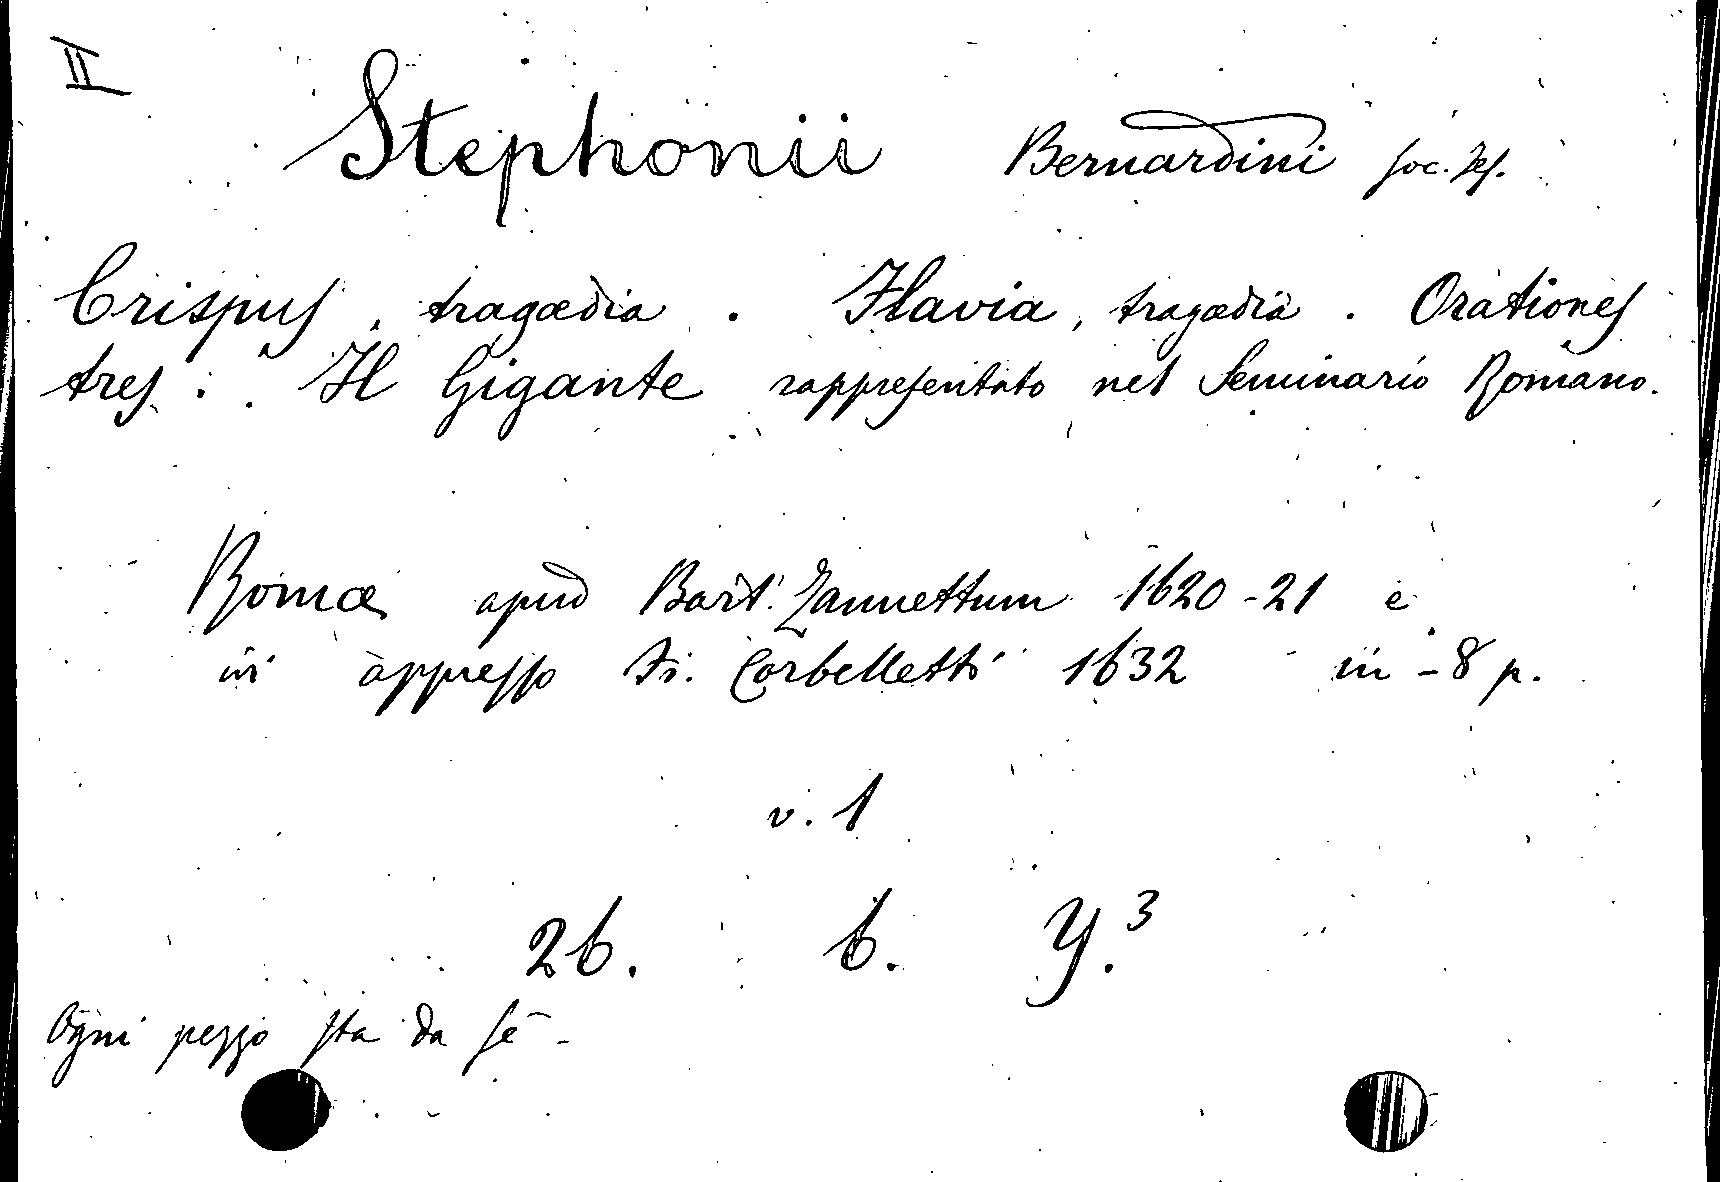 II
Stephonii Bernardini Soc. Jes.
Crispus, tragædia. Flavia, tragædia. Orationes
tres. Il Gigante rappresentato nel Seminario Romano.
Romæ apud Bart. Zannettum 1620-21 e
ivi appresso Fr. Corbelletti 1632 in-8 p.
v. 1
26. 6. Y.³
Ogni pezzo sta da sè-